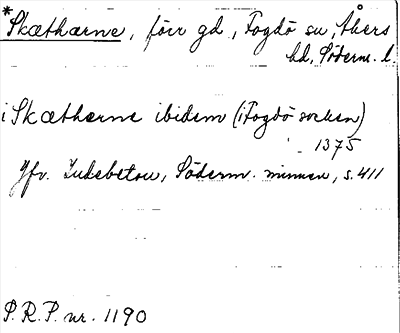 *Skæthærne, förr gd, Fogdö sn, Åkers
hd, Söderm. l.
i Skæthærne ibidem (i Fogdö socken)
1375
Jfr. Ludebetou, Söderm. minnen, s. 411
P.R.P. nr. 1190